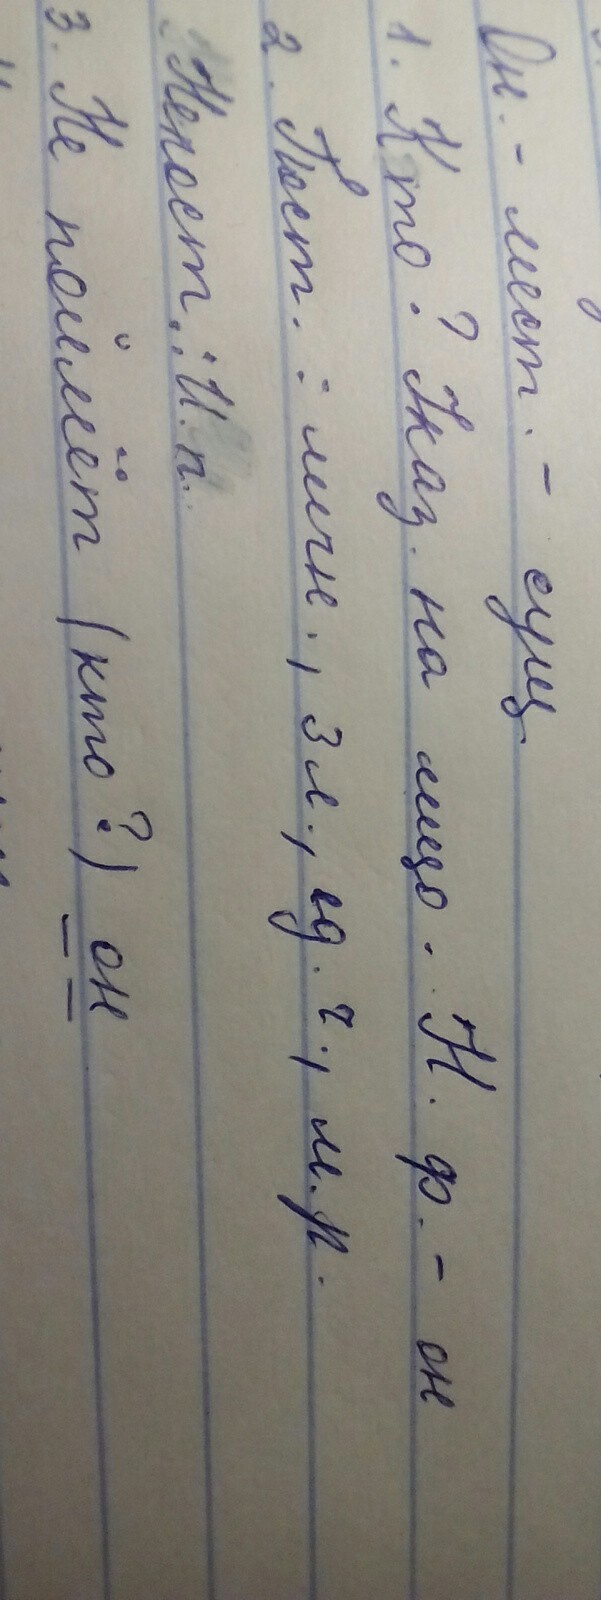 Он. - мест. - сущ
1. Кто? Указ. на лицо. Н. ф. - он
2. Пост. : личн., 3 л., ед. ч., м.р.
Непост.: И.п.
3. Не поймёт (кто?) он